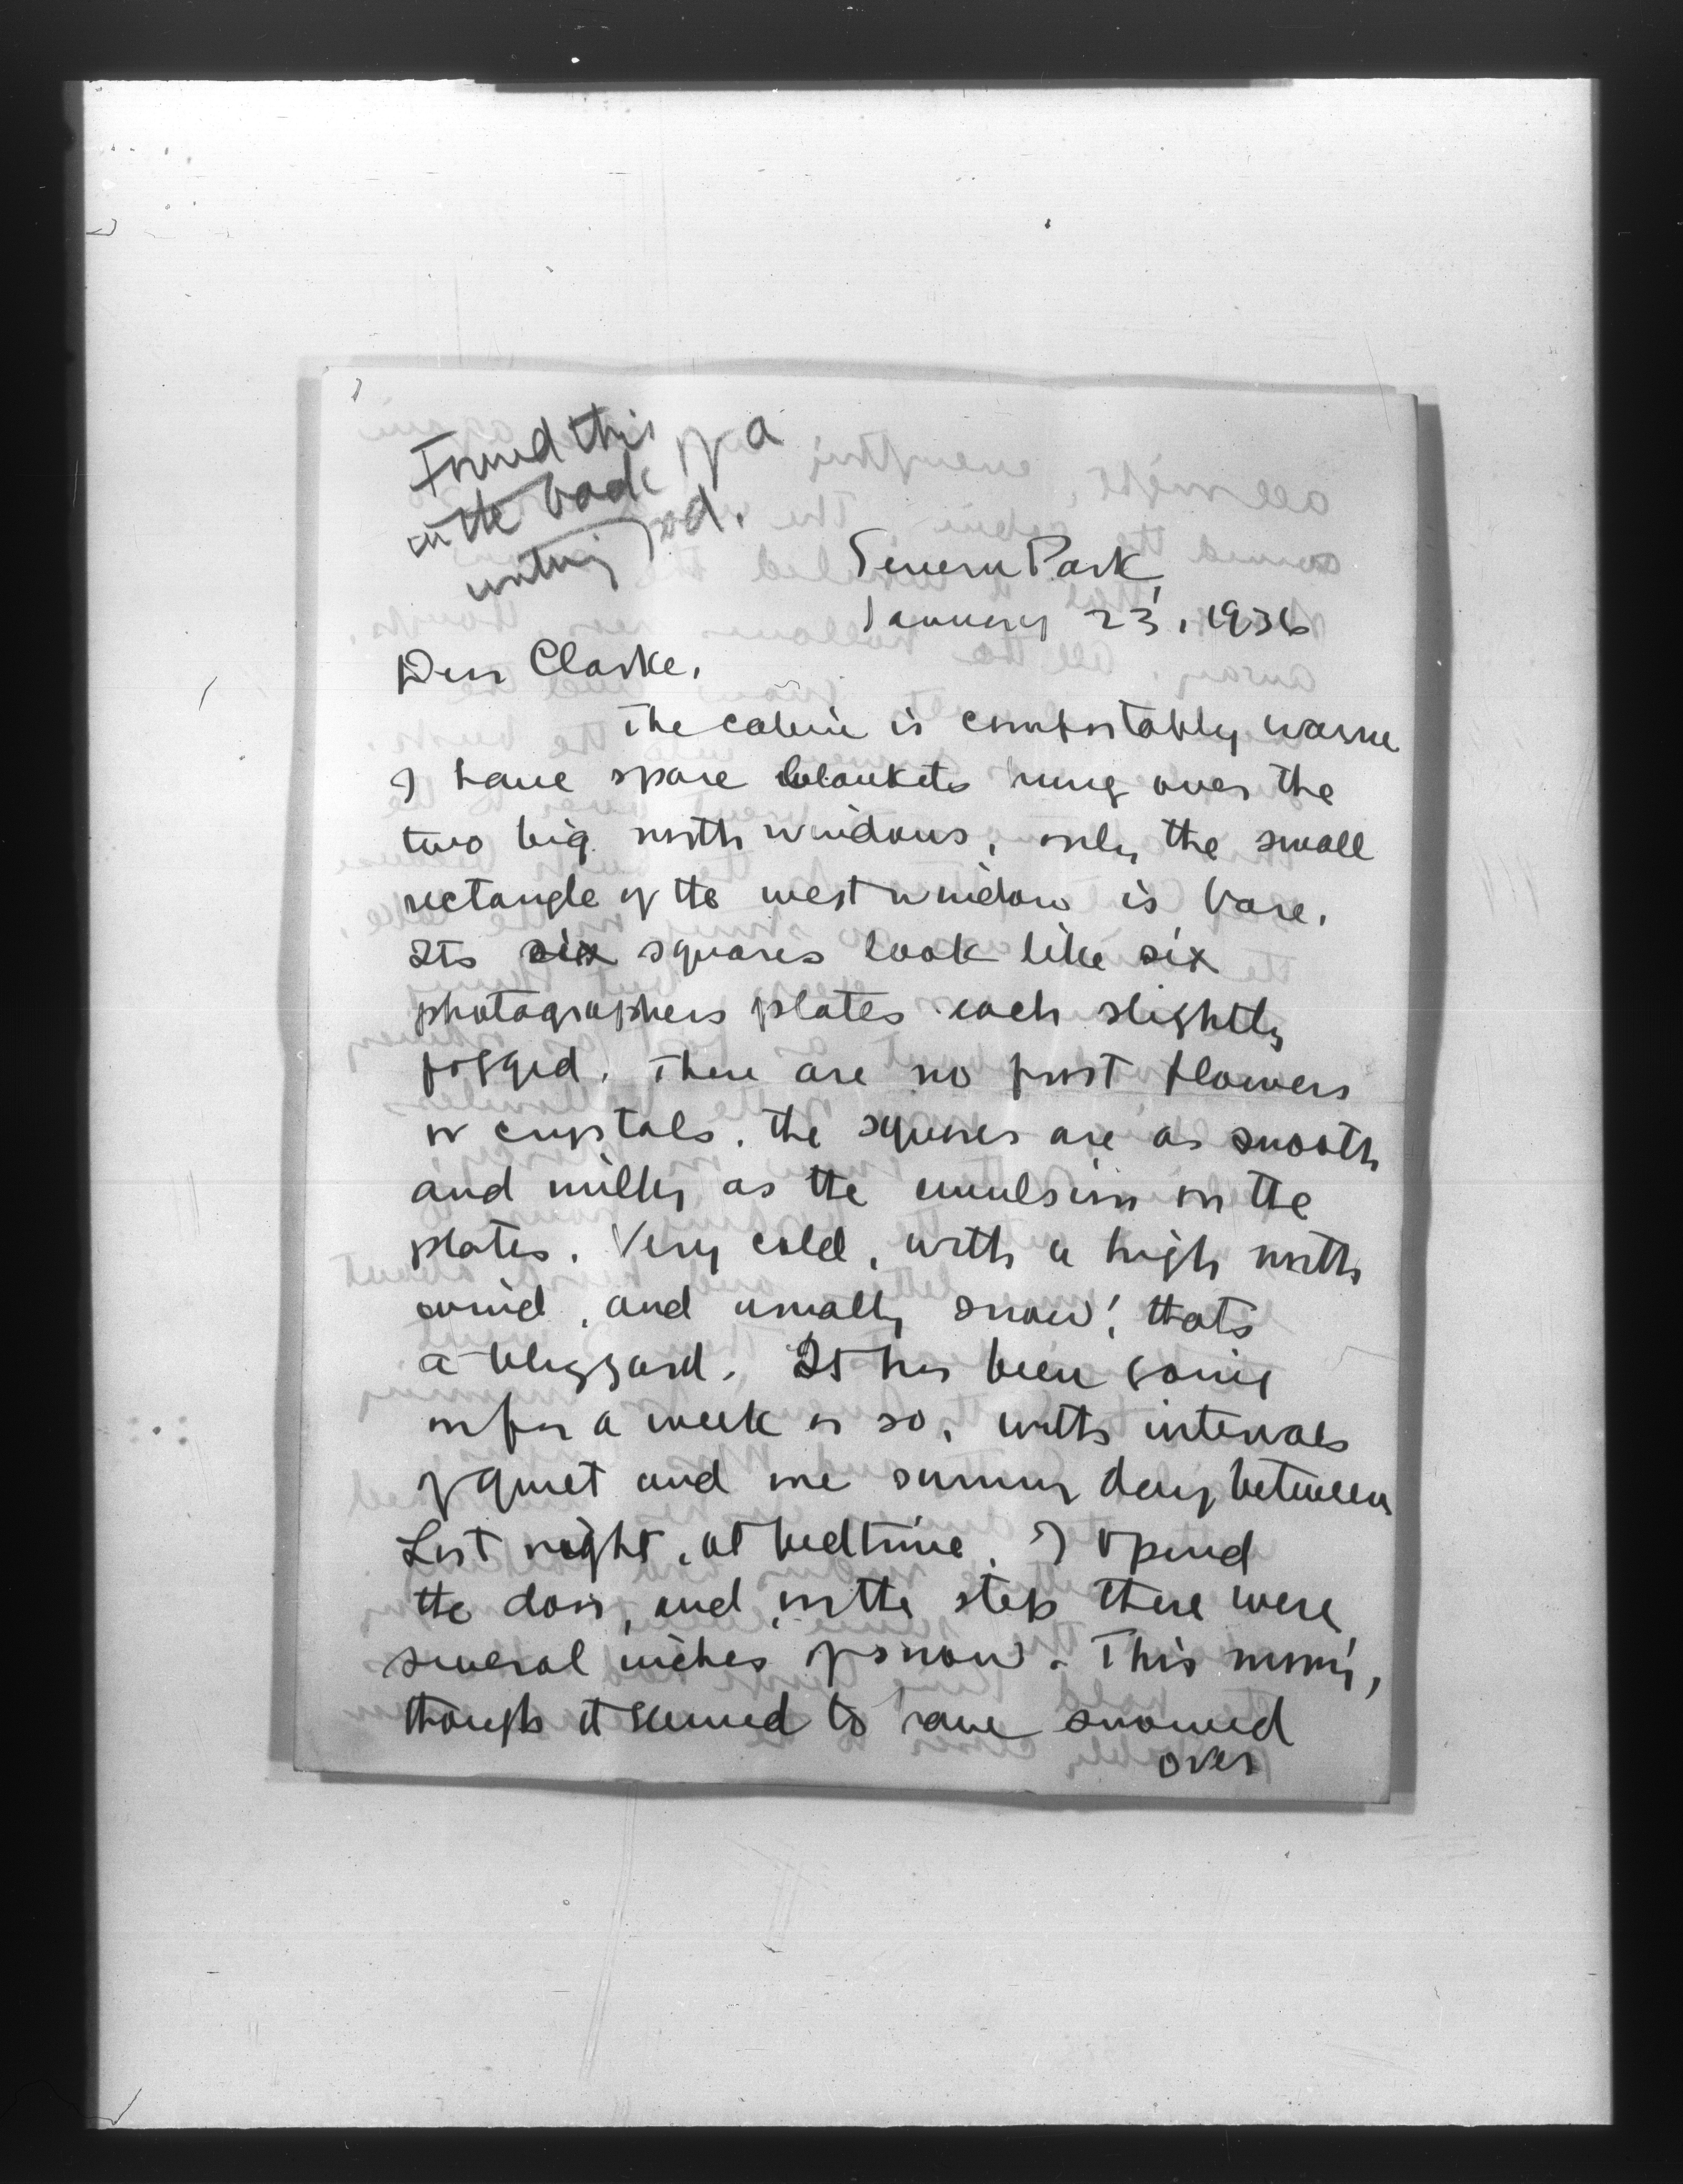 Found this
in the back of a
writing pad.
Severn Park,
January 23, 1936
Dear Clarke,
The cabin is comfortably warm
I have spare blankets hung over the
two big north windows, only the small
rectangle of the west window is bare.
Its six squares look like six
photographers plates each slightly
fogged. There are no frost flowers
or crystals. The squares are as smooth
and milky as the emulsion on the
plates. Very cold, with a high north
wind, and usually snow; thats
a blizzard. It has been going
on for a week or so, with intervals
of quiet and one sunny day between
Last night, at bedtime, I opened
the door, and on the step there were
several inches of snow. This morning,
though it seemed to have snowed
over